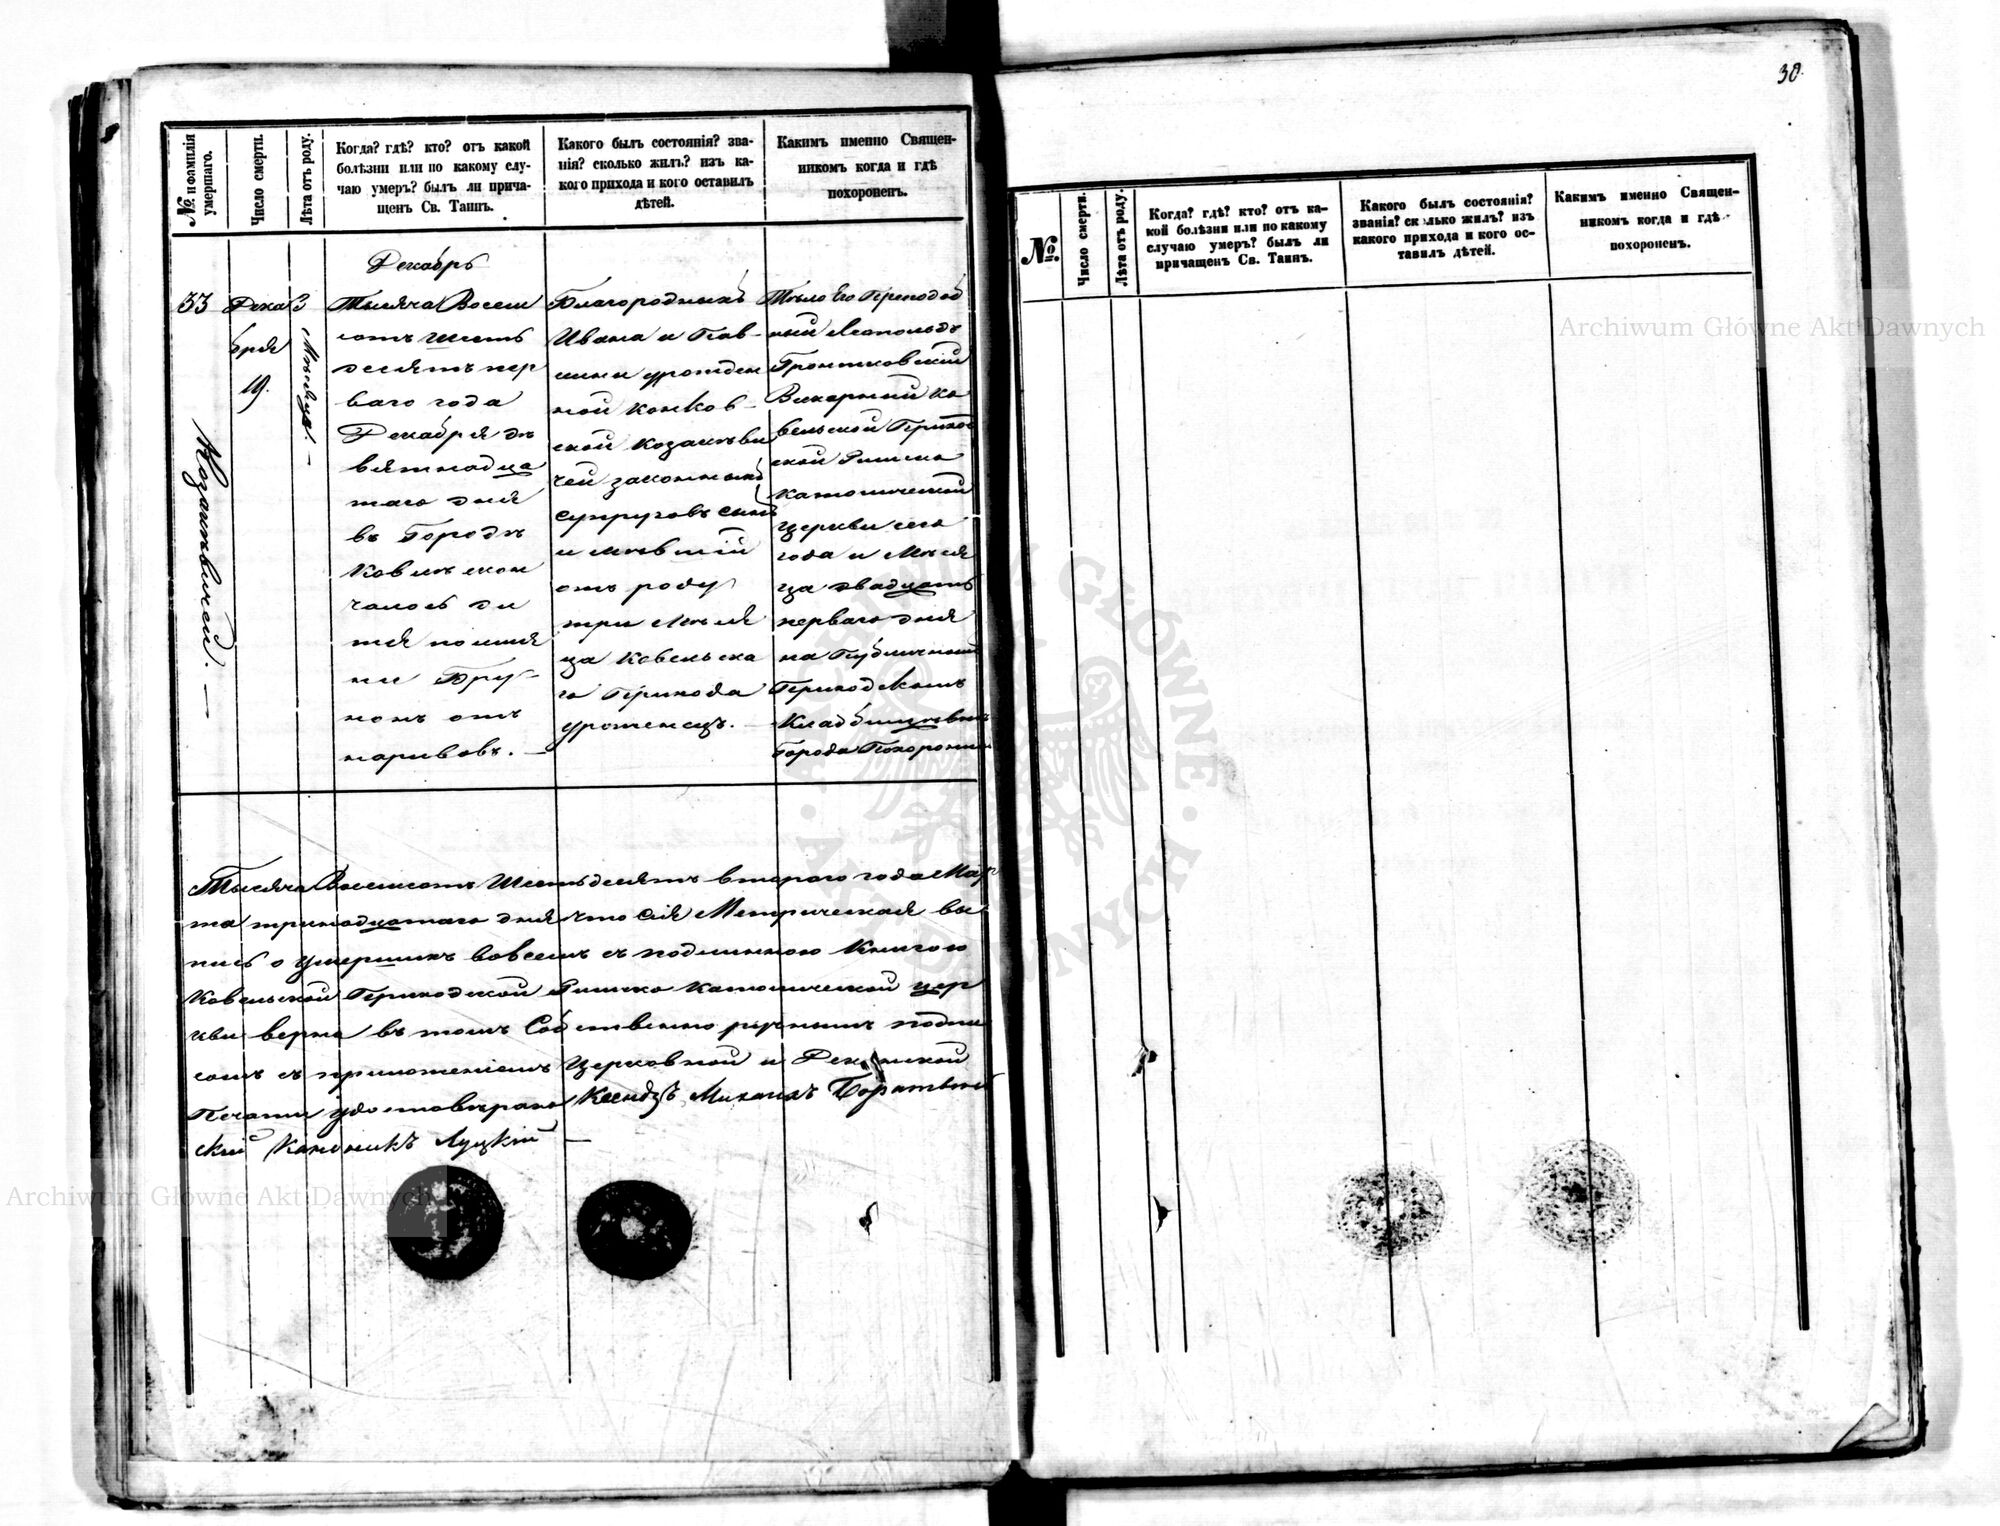 №. и фамилія умершаго.
Число смерти.
Лѣта отъ роду.
Когда? гдѣ? кто? отъ какой
болѣзни или по какому слу-
чаю умеръ? былъ ли прича-
щенъ Св. Таинъ.
Какого былъ состоянія? зва-
нія? сколько жилъ? изъ ка-
кого прихода и кого оставилъ
дѣтей.
Каким именно Священ-
никомъ когда и гдѣ
похороненъ.
33
Козакѣвичей. —
Дека
бря
19.
3
Мѣсяца. —
Декабрь
Тысяча Восем
сотъ шесть
десятъ пер
ваго года
Декабря дѣ
вятнадца
таго дня
въ Городѣ
Ковлѣ скон
чалось ди
тя по имя
ни Бру-
нонъ отъ
нарывовъ. —
Благородныхъ
Ивана и Пав-
лины урожден
ной Конков-
ской Козакѣви
чей законныхъ
супруговъ сынъ
имѣвшій
отъ роду
три Мѣся
ца Ковельска
го Прихода
уроженецъ. —
Тѣло Его Преподоб
ный Леопольдъ
Гронтковскій
Викарный Ко
вельской Приход
ской Римско
католической
Церкви сего
года и Мѣся
ца двадцать
перваго дня
на Публичном
Приходском
Кладбищѣ
Города Похоронил
Тысяча Восемсотъ Шестьдесятъ втораго года Мар
та тринадцатаго дня что сія Метрическая вы
пись о умершихъ во всемъ съ подлинною Книгою
Ковельской Приходской Римско Католической цер
кви верна въ томъ Собственно ручнымъ подпи
сомъ съ приложеніемъ Церковной и Деканской
Печати удостовѣряю Ксендзъ Михаилъ
скій Каноникъ Луцкій —
30.
№.
Число смерти.
Лѣта отъ роду.
Когда? гдѣ? кто? отъ ка-
кой болѣзни или по какому
случаю умеръ? былъ ли
причащенъ Св. Таинъ.
Какого былъ состоянія?
званія? сколько жилъ? изъ
какого прихода и кого ос-
тавилъ дѣтей.
Какимъ именно Священ-
никомъ когда и гдѣ
похороненъ.
Archiwum Główne Akt Dawnych
Archiwum Główne Akt Dawnych
ARCHIWUM GŁÓWNE AKT DAWNYCH